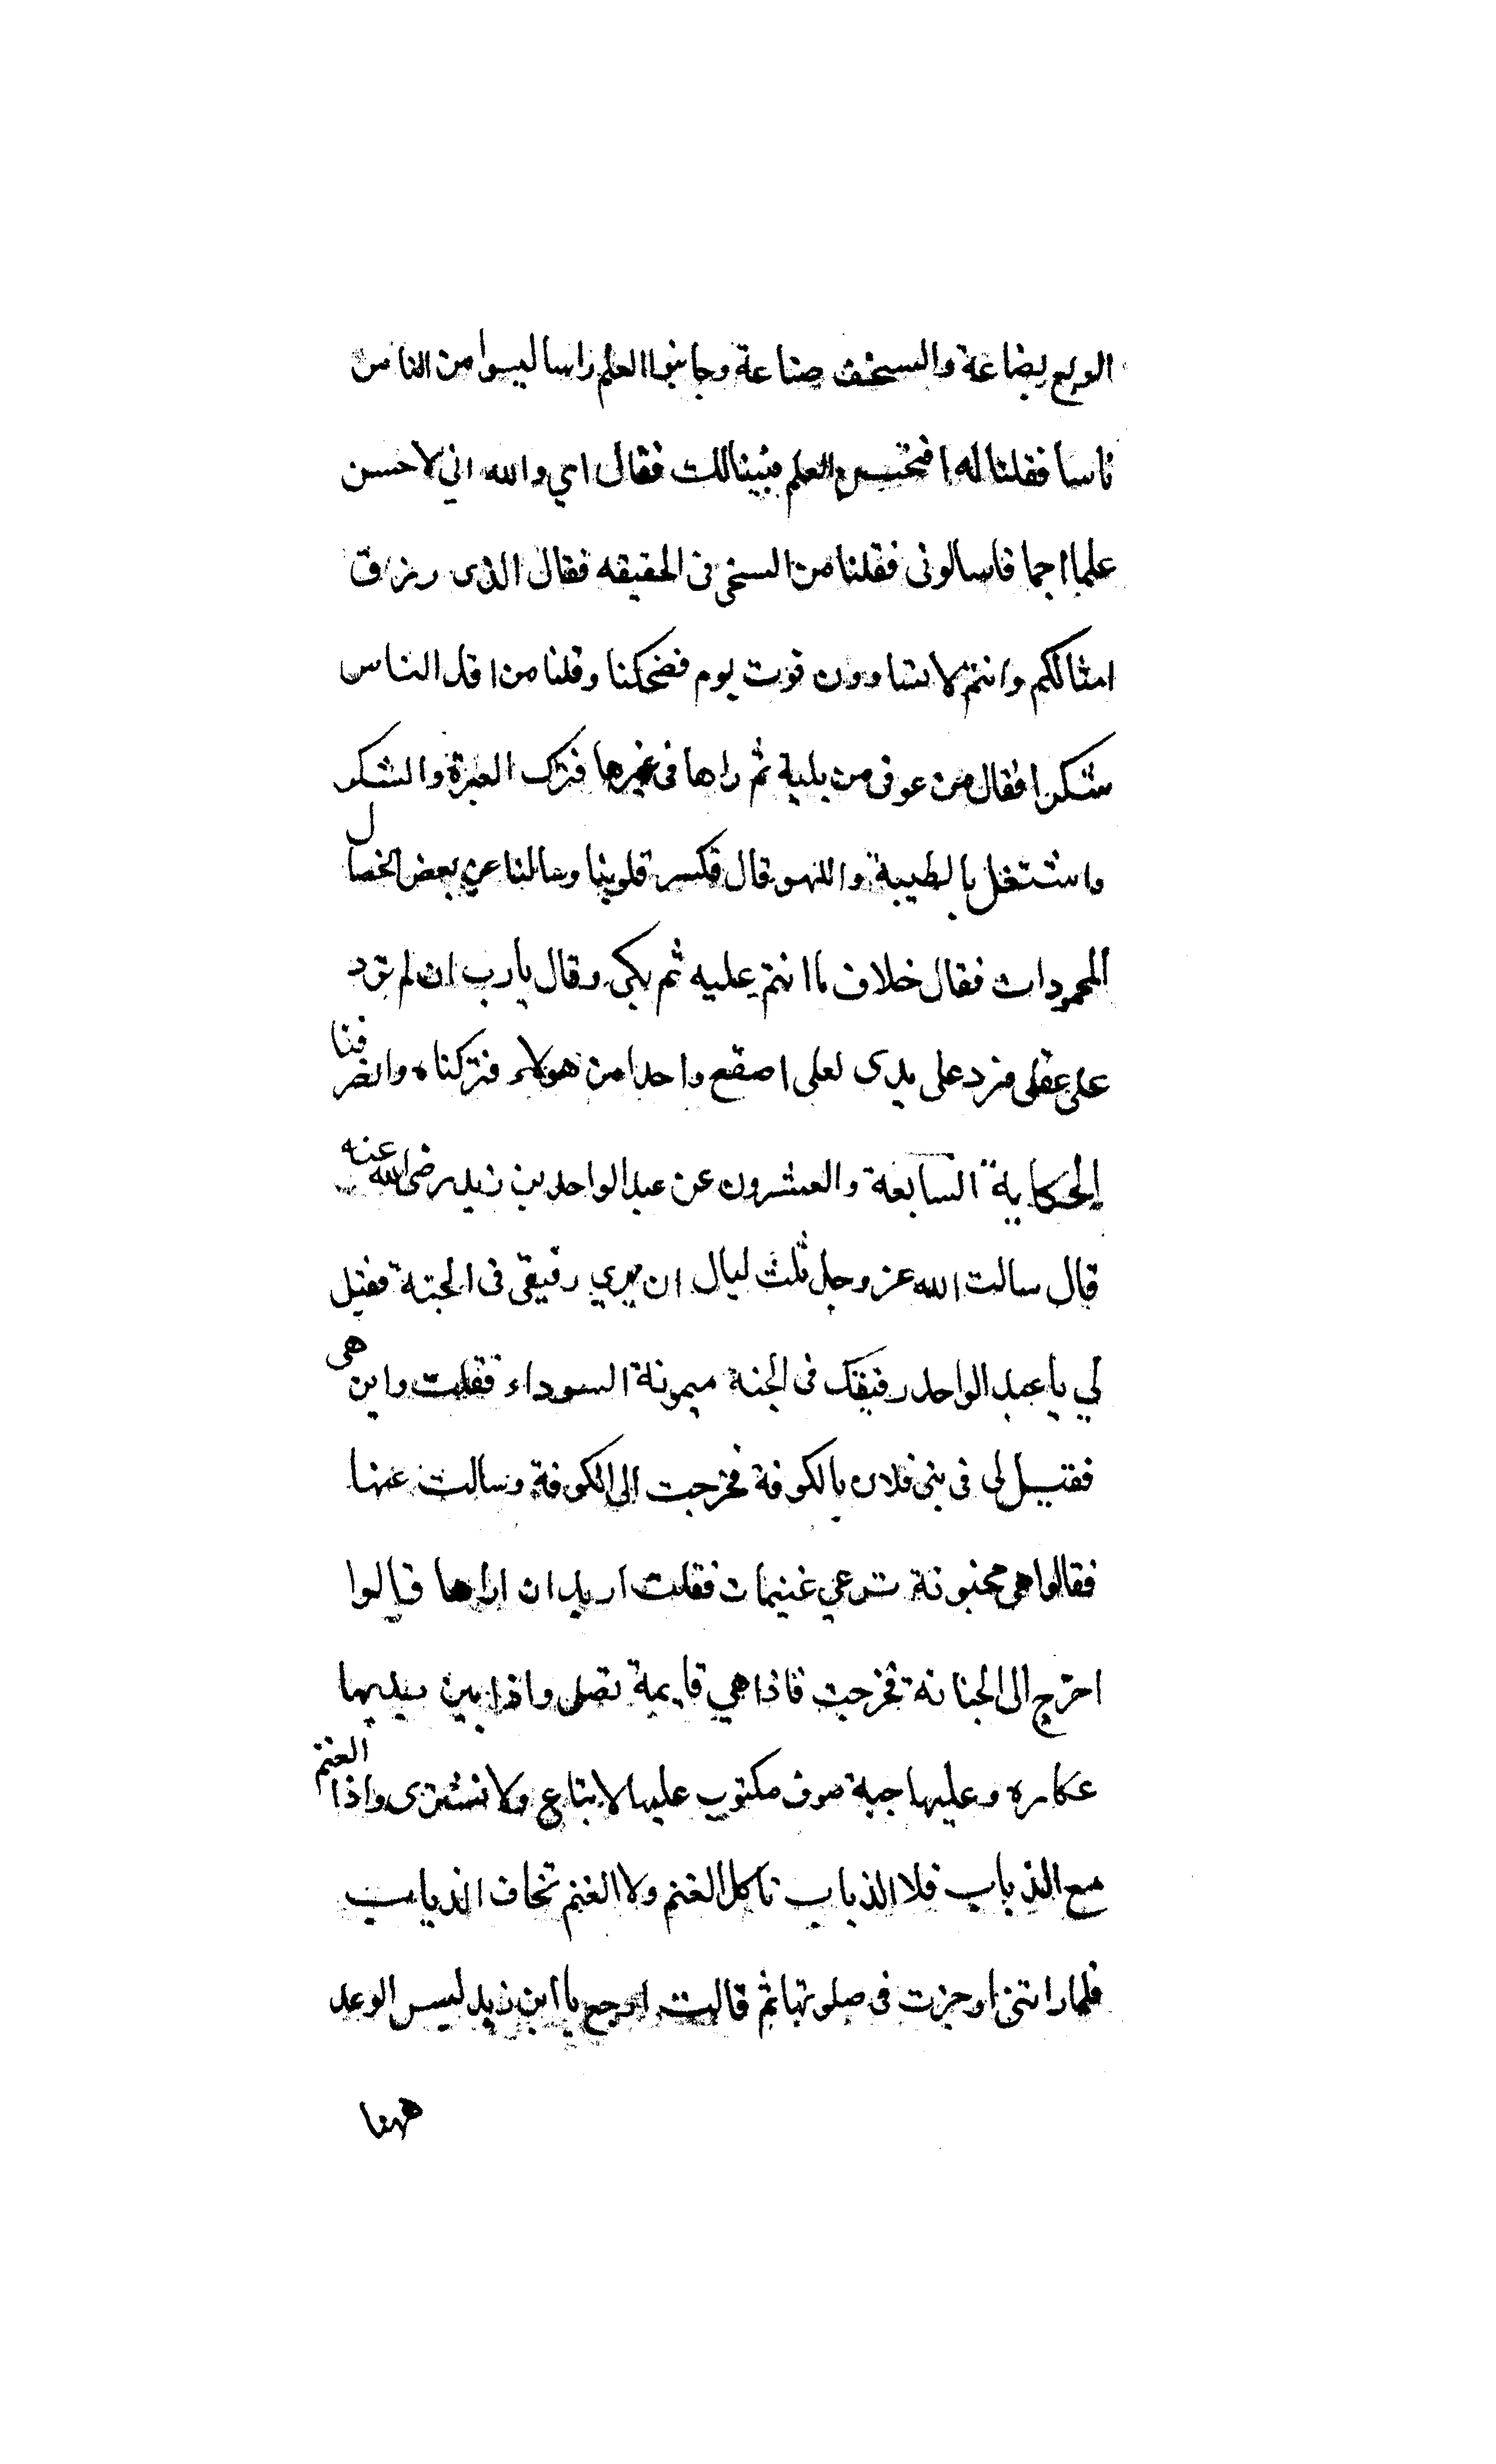 الولع بضاعة والسخف صناعة وجانبوا العلم راسا ليسوا من الناس
ناسا فقلنا له افتحسن العلم فبينا لك فقال اي والله اني لاحسن
علما جما فاسالونى فقلنا من السخى فى الحقيقه فقال الذى رزق
امثالكم وانتم لا تساوون قوت يوم فضحكنا وقلنا من اقل الناس
شكرا فقال من عوفى من بلية ثم راها فى غيرها فترك العبرة والشكر
واشتغل بالطيبة واللهو قال فكسر قلوبنا وسالنا عن بعض الخصال
المحمودات فقال خلاف ما انتم عليه ثم بكى وقال يارب ان لم ترد
على عقلى فرد على يدى لعلى اصفع واحدا من هولاء فتركناه وانصرفنا
الحكاية السابعة والعشرون عن عبد الواحد بن زيد رضى الله عنه
قال سالت الله عز وجل ثلث ليال ان يري رفيقى فى الجنة فقيل
لي يا عبد الواحد رفيقك فى الجنة ميمونة السوداء فقلت واين هى
فقيل لى فى بنى فلان بالكوفة فخرجت الى الكوفة وسالت عنها
فقالوا هى مجنونة ترعي غنيمات فقلت اريد ان اراها قالوا
اخرج الى الجبانة فخرجت فاذا هي قايمة تصلى واذا بين يديها
عكازه وعليها جبة صوف مكتوب عليها لا تباع ولا تشترى واذا الغنم
مع الذياب فلا الذياب تاكل الغنم ولا الغنم تخاف الذياب
فلما راتنى اوجزت فى صلوتها ثم قالت ارجع يا ابن زيد ليس الوعد
ههنا